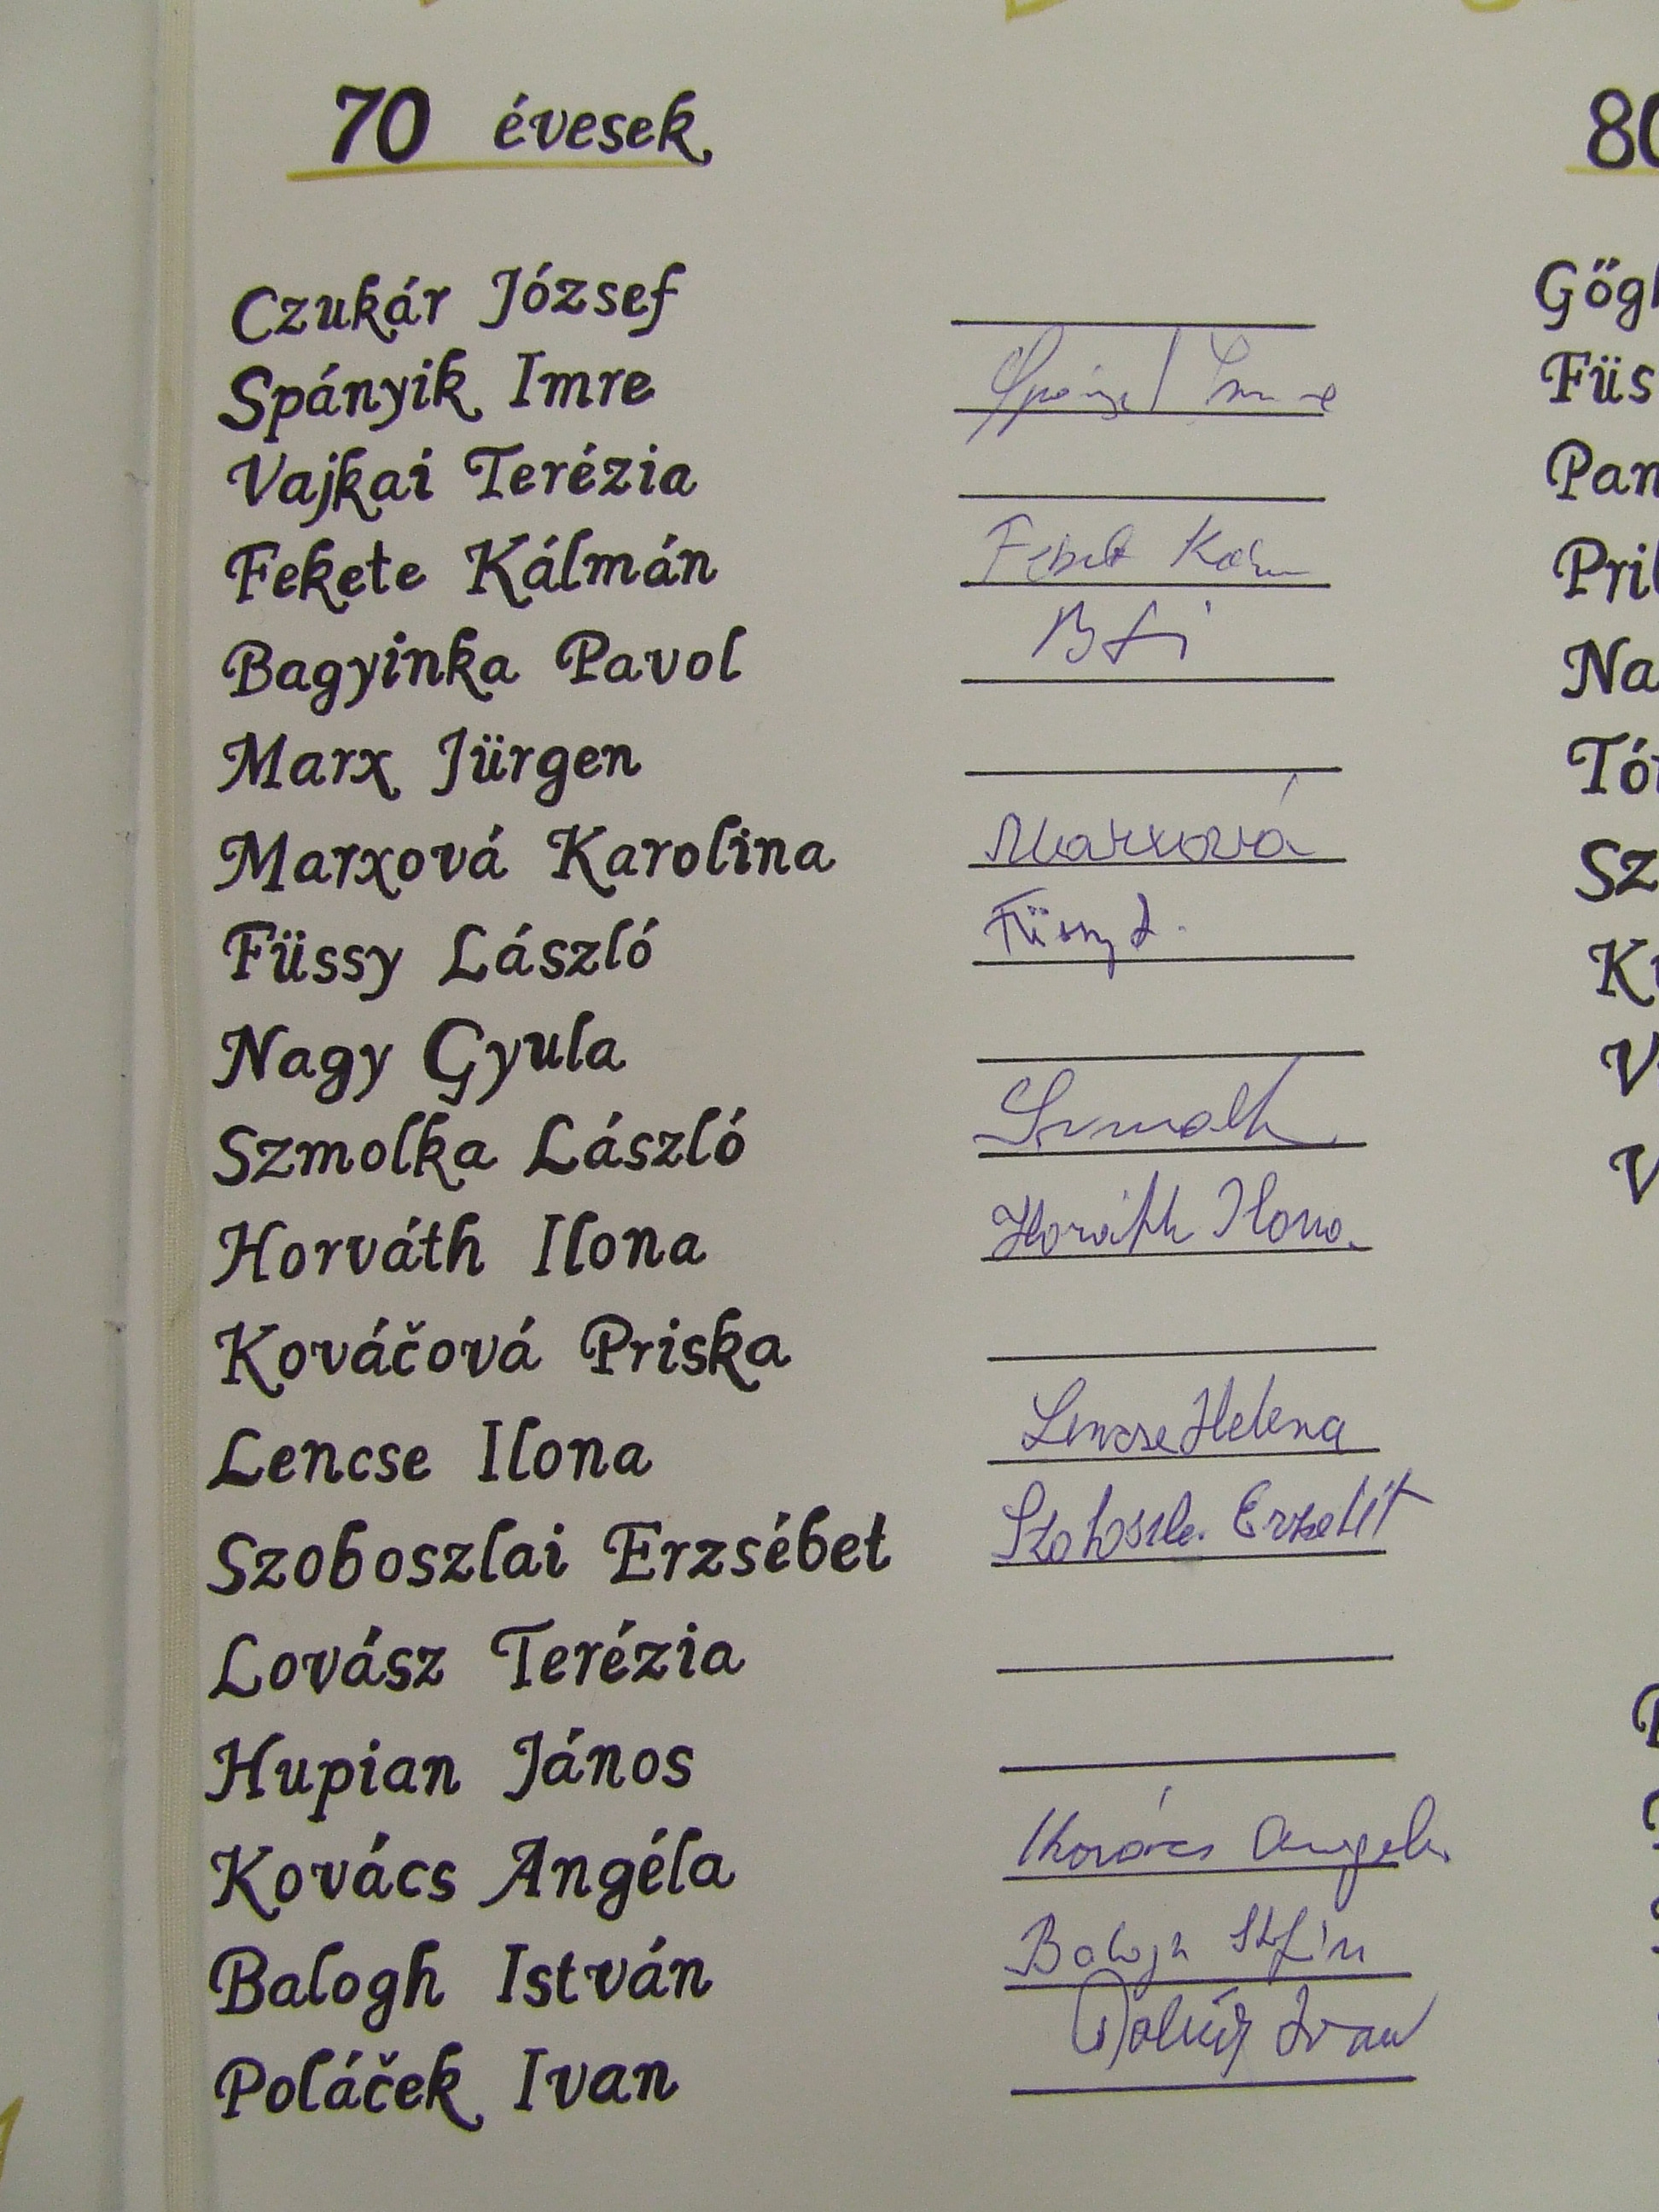 70 évesek
80
Czukár József
Gőgh
Spányik Imre
Füs
Vajkai Terézia
Pan
Fekete Kálmán
Pril
Bagyinka Pavol
Na
Marx Jürgen
Tó
Marxová Karolina Marxová
Sz
Füssy László Füssy L.
K
Nagy Gyula
V
Szmolka László
V
Horváth Ilona Horváth Ilona
Kováčová Priska
Lencse Ilona Lencse Helena
Szoboszlai Erzsébet
Lovász Terézia
Hupian János
Kovács Angéla Kovács Angela
Balogh István Balogh
Poláček Ivan Ivan